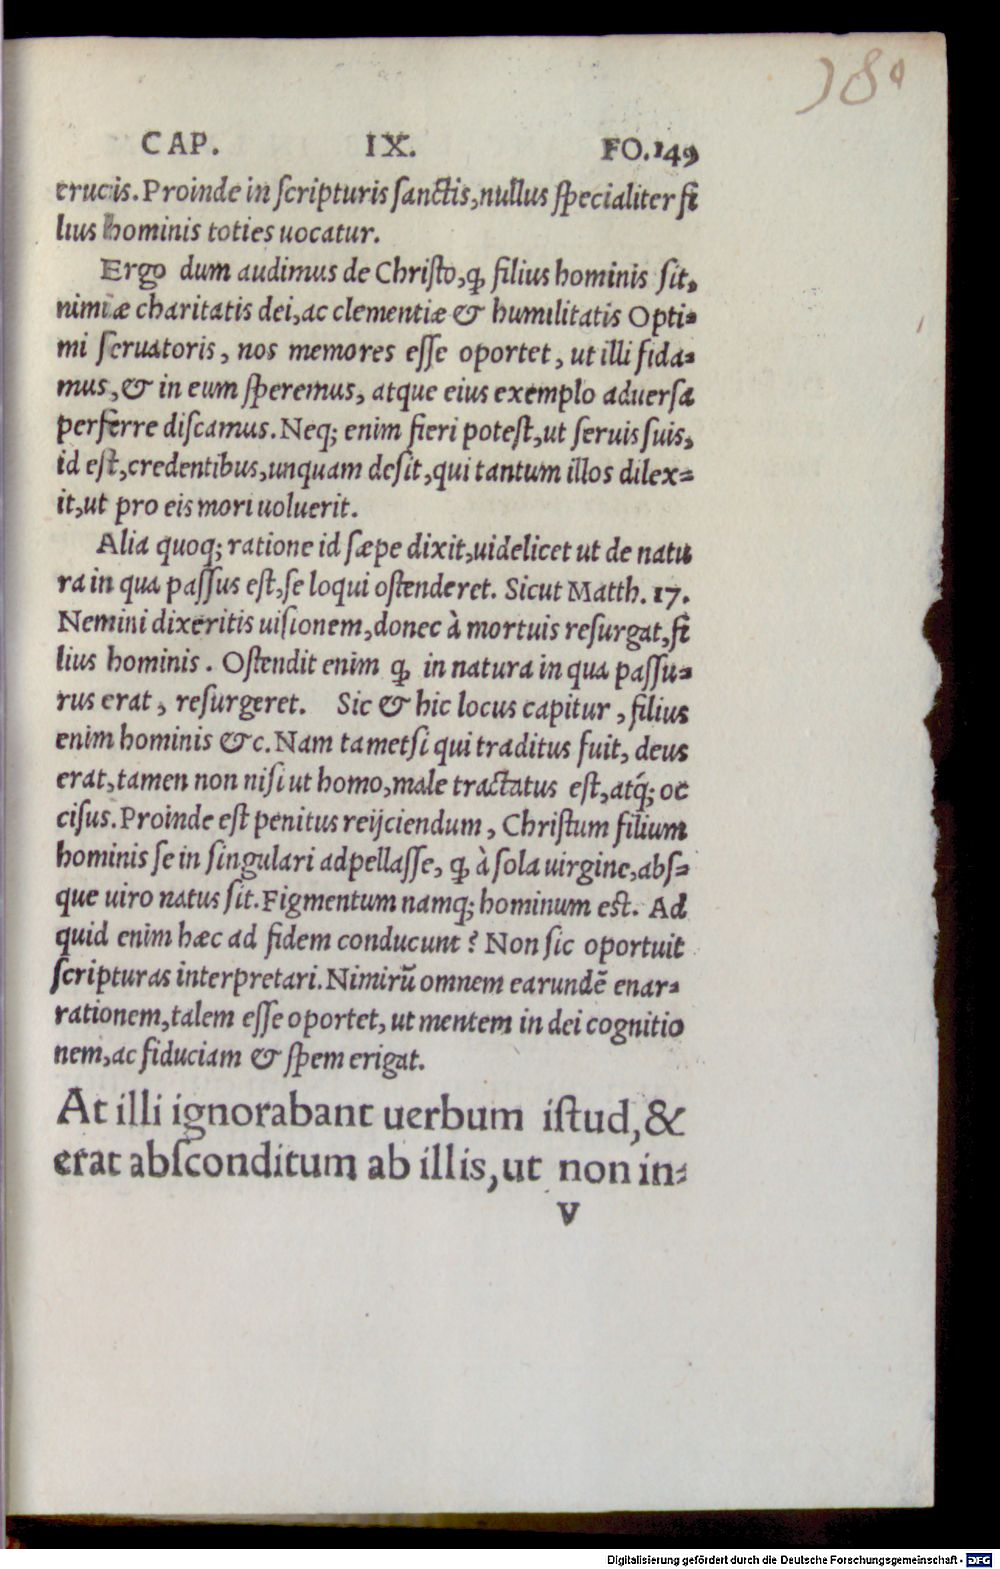 180
CAP. IX. FO.149
crucis. Proinde in scripturis sanctis, nullus specialiter fi
lius hominis toties uocatur.
Ergo dum audimus de Christo, ꝙ filius hominis sit,
nimiæ charitatis dei, ac clementiæ & humilitatis Opti-
mi seruatoris, nos memores esse oportet, ut illi fida-
mus, & in eum speremus, atque eius exemplo aduersa
perferre discamus. Neq; enim fieri potest, ut seruis suis,
id est, credentibus, unquam desit, qui tantum illos dilex-
it, ut pro eis mori uoluerit.
Alia quoq; ratione id sæpe dixit, uidelicet ut de natu
ra in qua passus est, se loqui ostenderet. Sicut Matth. 17.
Nemini dixeritis uisionem, donec à mortuis resurgat, fi
lius hominis. Ostendit enim ꝙ in natura in qua passu-
rus erat, resurgeret. Sic & hic locus capitur, filius
enim hominis &c. Nam tametsi qui traditus fuit, deus
erat, tamen non nisi ut homo, male tractatus est, atq́; oc
cisus. Proinde est penitus reijciendum, Christum filium
hominis se in singulari adpellasse, ꝙ à sola uirgine, abs-
que uiro natus sit. Figmentum namq; hominum est. Ad
quid enim hæc ad fidem conducunt? Non sic oportuit
scripturas interpretari. Nimirũ omnem earundẽ enar-
rationem, talem esse oportet, ut mentem in dei cognitio
nem, ac fiduciam & spem erigat.
At illi ignorabant uerbum istud, &
erat absconditum ab illis, ut non in-
V
Digitalisierung gefördert durch die Deutsche Forschungsgemeinschaft - DFG